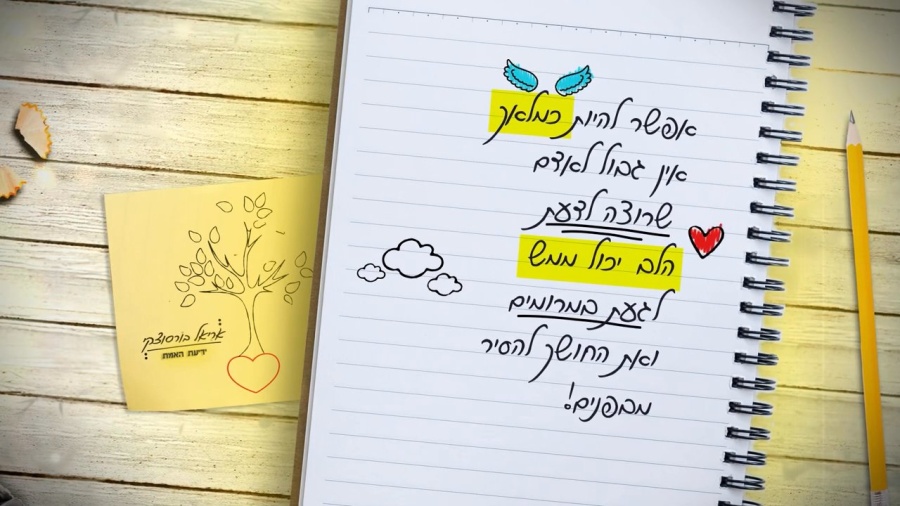 אפשר להיות כמלאך
אין גבול לאדם
שרוצה לדעת
הלב יכול ממש
לגעת במרומים
ואת החושך להסיר
מבפנים!
אריאל בורסוצקי
ידיעת האמת